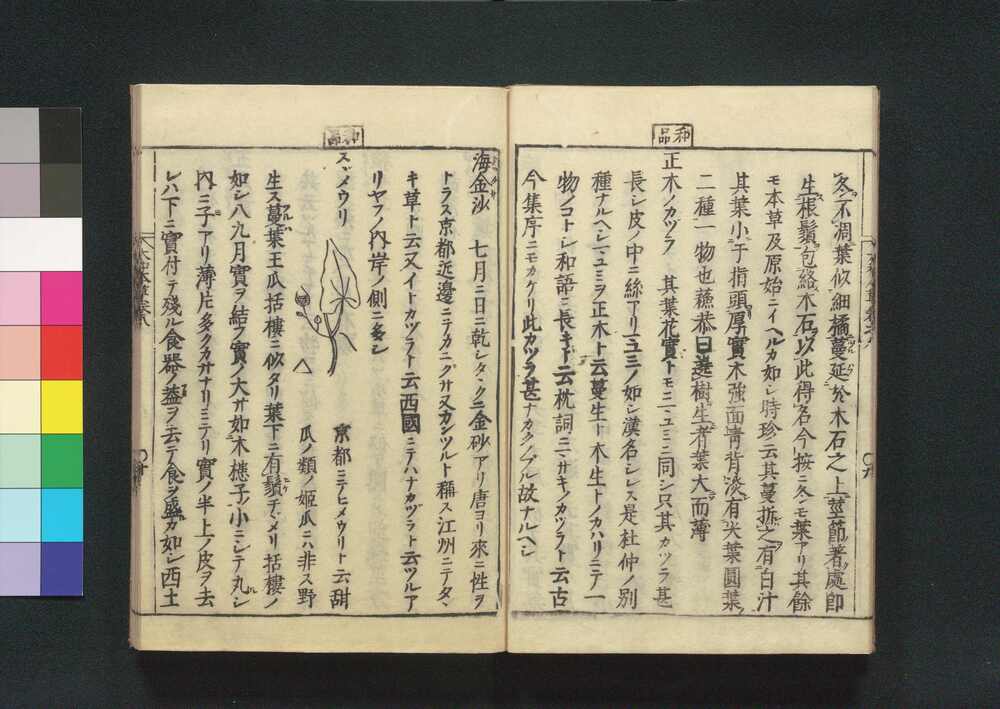 冬不凋葉似細橘蔓延於木石之上莖節著處即
生根鬚包絡木石以此得名今按ニ冬モ葉アリ其餘
モ本草及原始ニイヘルカ如シ時珍云其蔓折之有白汁
其葉小于指頭厚實木強面青背淡有尖葉圓葉
二種一物也蘓恭曰遶樹生者葉大而薄
和品
正木ノカヅラ 其葉花實トモニマユミニ同シ只其カツラ甚
長シ皮ノ中ニ絲アリマユミノ如シ漢名シレス是杜仲ノ別
種ナルヘシマユミヲ正木ト云蔓生ト木生トノカハリニテ一
物ノコトシ和語ニ長キト云枕詞ニマサキノカツラト云古
今集序ニモカケリ此カツラ甚ナカクノブル故ナルヘシ
海金沙 七月ニ日ニ乾シタヽクニ金砂アリ唐ヨリ來ニ性ヲ
トラス京都近邊ニテカニグサ又カンツルト稱ス江州ニテタヽ
キ草ト云又イトカヅラト云西國ニテハナカヅラト云ツルア
リヤフノ内岸ノ側ニ多シ
和品
スヾメウリ
京都ニテヒメウリト云甜
瓜ノ類ノ姬瓜ニハ非ス野
生ス蔓葉王瓜括樓ニ似タリ葉下ニ有鬚チヾメリ括樓ノ
如シ八九月實ヲ結フ實ノ大サ如木槵子ノ小ニシテ丸シ
内ニ子アリ薄片多クカサナリミテリ實ノ半上ノ皮ヲ去
レハ下ニ實付テ殘ル食器ノ葢ヲ去テ食ヲ盛カ如シ西土